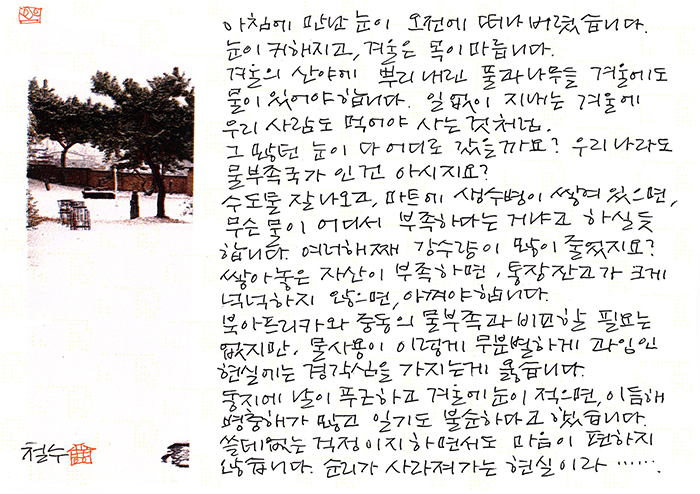 아침에 만난 눈이 오전에 떠나 버렸습니다.
눈이 귀해지고, 겨울은 목이 마릅니다.
겨울의 산야에 뿌리내린 풀과 나무들 겨울에도
물이 있어야 합니다. 일없이 지내는 겨울에
우리 사람도 먹어야 사는 것처럼.
그 많던 눈이 다 어디로 갔을까요? 우리나라도
물부족국가인 건 아시지요?
수도물 잘 나오고, 마트에 생수병이 쌓여 있으면,
무슨 물이 어디서 부족하다는 게냐고 하실 듯
합니다. 여러해째 강수량이 많이 줄었지요?
쌓아놓은 자산이 부족하면, 통장잔고가 크게
넉넉하지 않으면, 아껴야 합니다.
북아프리카와 중동의 물부족과 비교할 필요는
없지만, 물사용이 이렇게 무분별하게 과잉인
현실에는 경각심을 가지는게 옳습니다.
동지에 날이 푸근하고 겨울에 눈이 적으면, 이듬해
병충해가 많고 일기도 불순하다고 했습니다.
쓸데없는 걱정이지 하면서도 마음이 편하지
않습니다. 순리가 사라져가는 현실이라 ‥‥‥.
철수